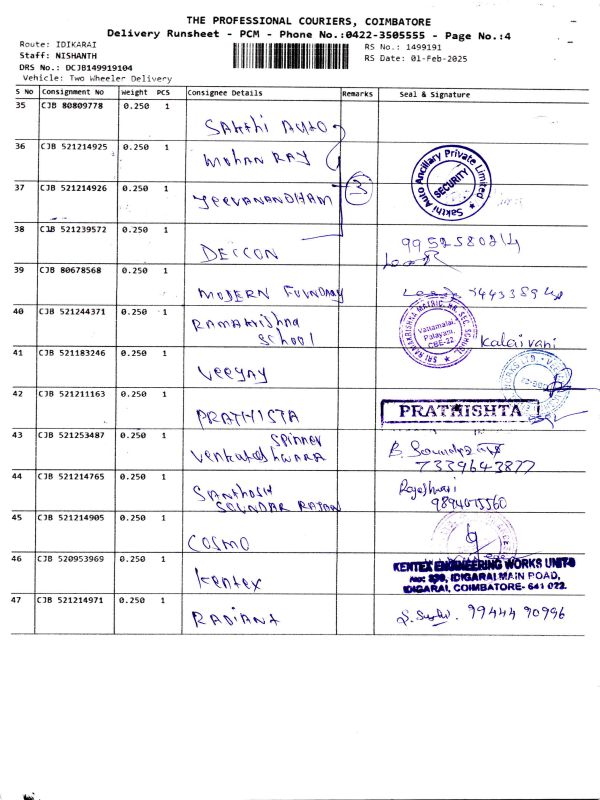 THE PROFESSIONAL COURIERS, COIMBATORE
Delivery Runsheet - PCM - Phone No.:0422-3505555 - Page No.:4
Route: IDIKARAI
RS No.: 1499191
Staff: NISHANTH
RS Date: 01-Feb-2025
DRS No.: DCJB149919104
Vehicle: Two Wheeler Delivery
S No Consignment No Weight PCS Consignee Details Remarks Seal & Signature
35 CJB 80809778 0.250 1
SAKthi AUto
36 CJB 521214925 0.250 1
MOHAN RAY
37 CJB 521214926 0.250 1
JEEVANANDHAM
3
Sakthi Auto Ancillary Private Limited
SECURITY
38 CJB 521239572 0.250 1
DECCON
39 CJB 80678568 0.250 1
MODERN FOUNDARY
40 CJB 521244371 0.250 1
RAMAKRISHNA
SCHOOL
SRI RAMAKRISHNA MATRIC. HR. SEC. SCHOOL
Vattamalai
Palayam,
CBE-22
Kalaivani
41 CJB 521183246 0.250 1
VEEJAY
42 CJB 521211163 0.250 1
PRATHISTA
PRATHISHTA
43 CJB 521253487 0.250 1
SPinner
Venkateshwara
B.
7339643877
44 CJB 521214765 0.250 1
SANTHOSH
SOUNDAR RAJAN
Rajeshwari
45 CJB 521214905 0.250 1
COSMO
46 CJB 520953969 0.250 1
Kentex
KENTEX ENGINEERING WORKS UNIT-II
IDIGARAI MAIN ROAD,
IDIGARAI, COIMBATORE- 641 022.
47 CJB 521214971 0.250 1
RADIANT
99444 90996